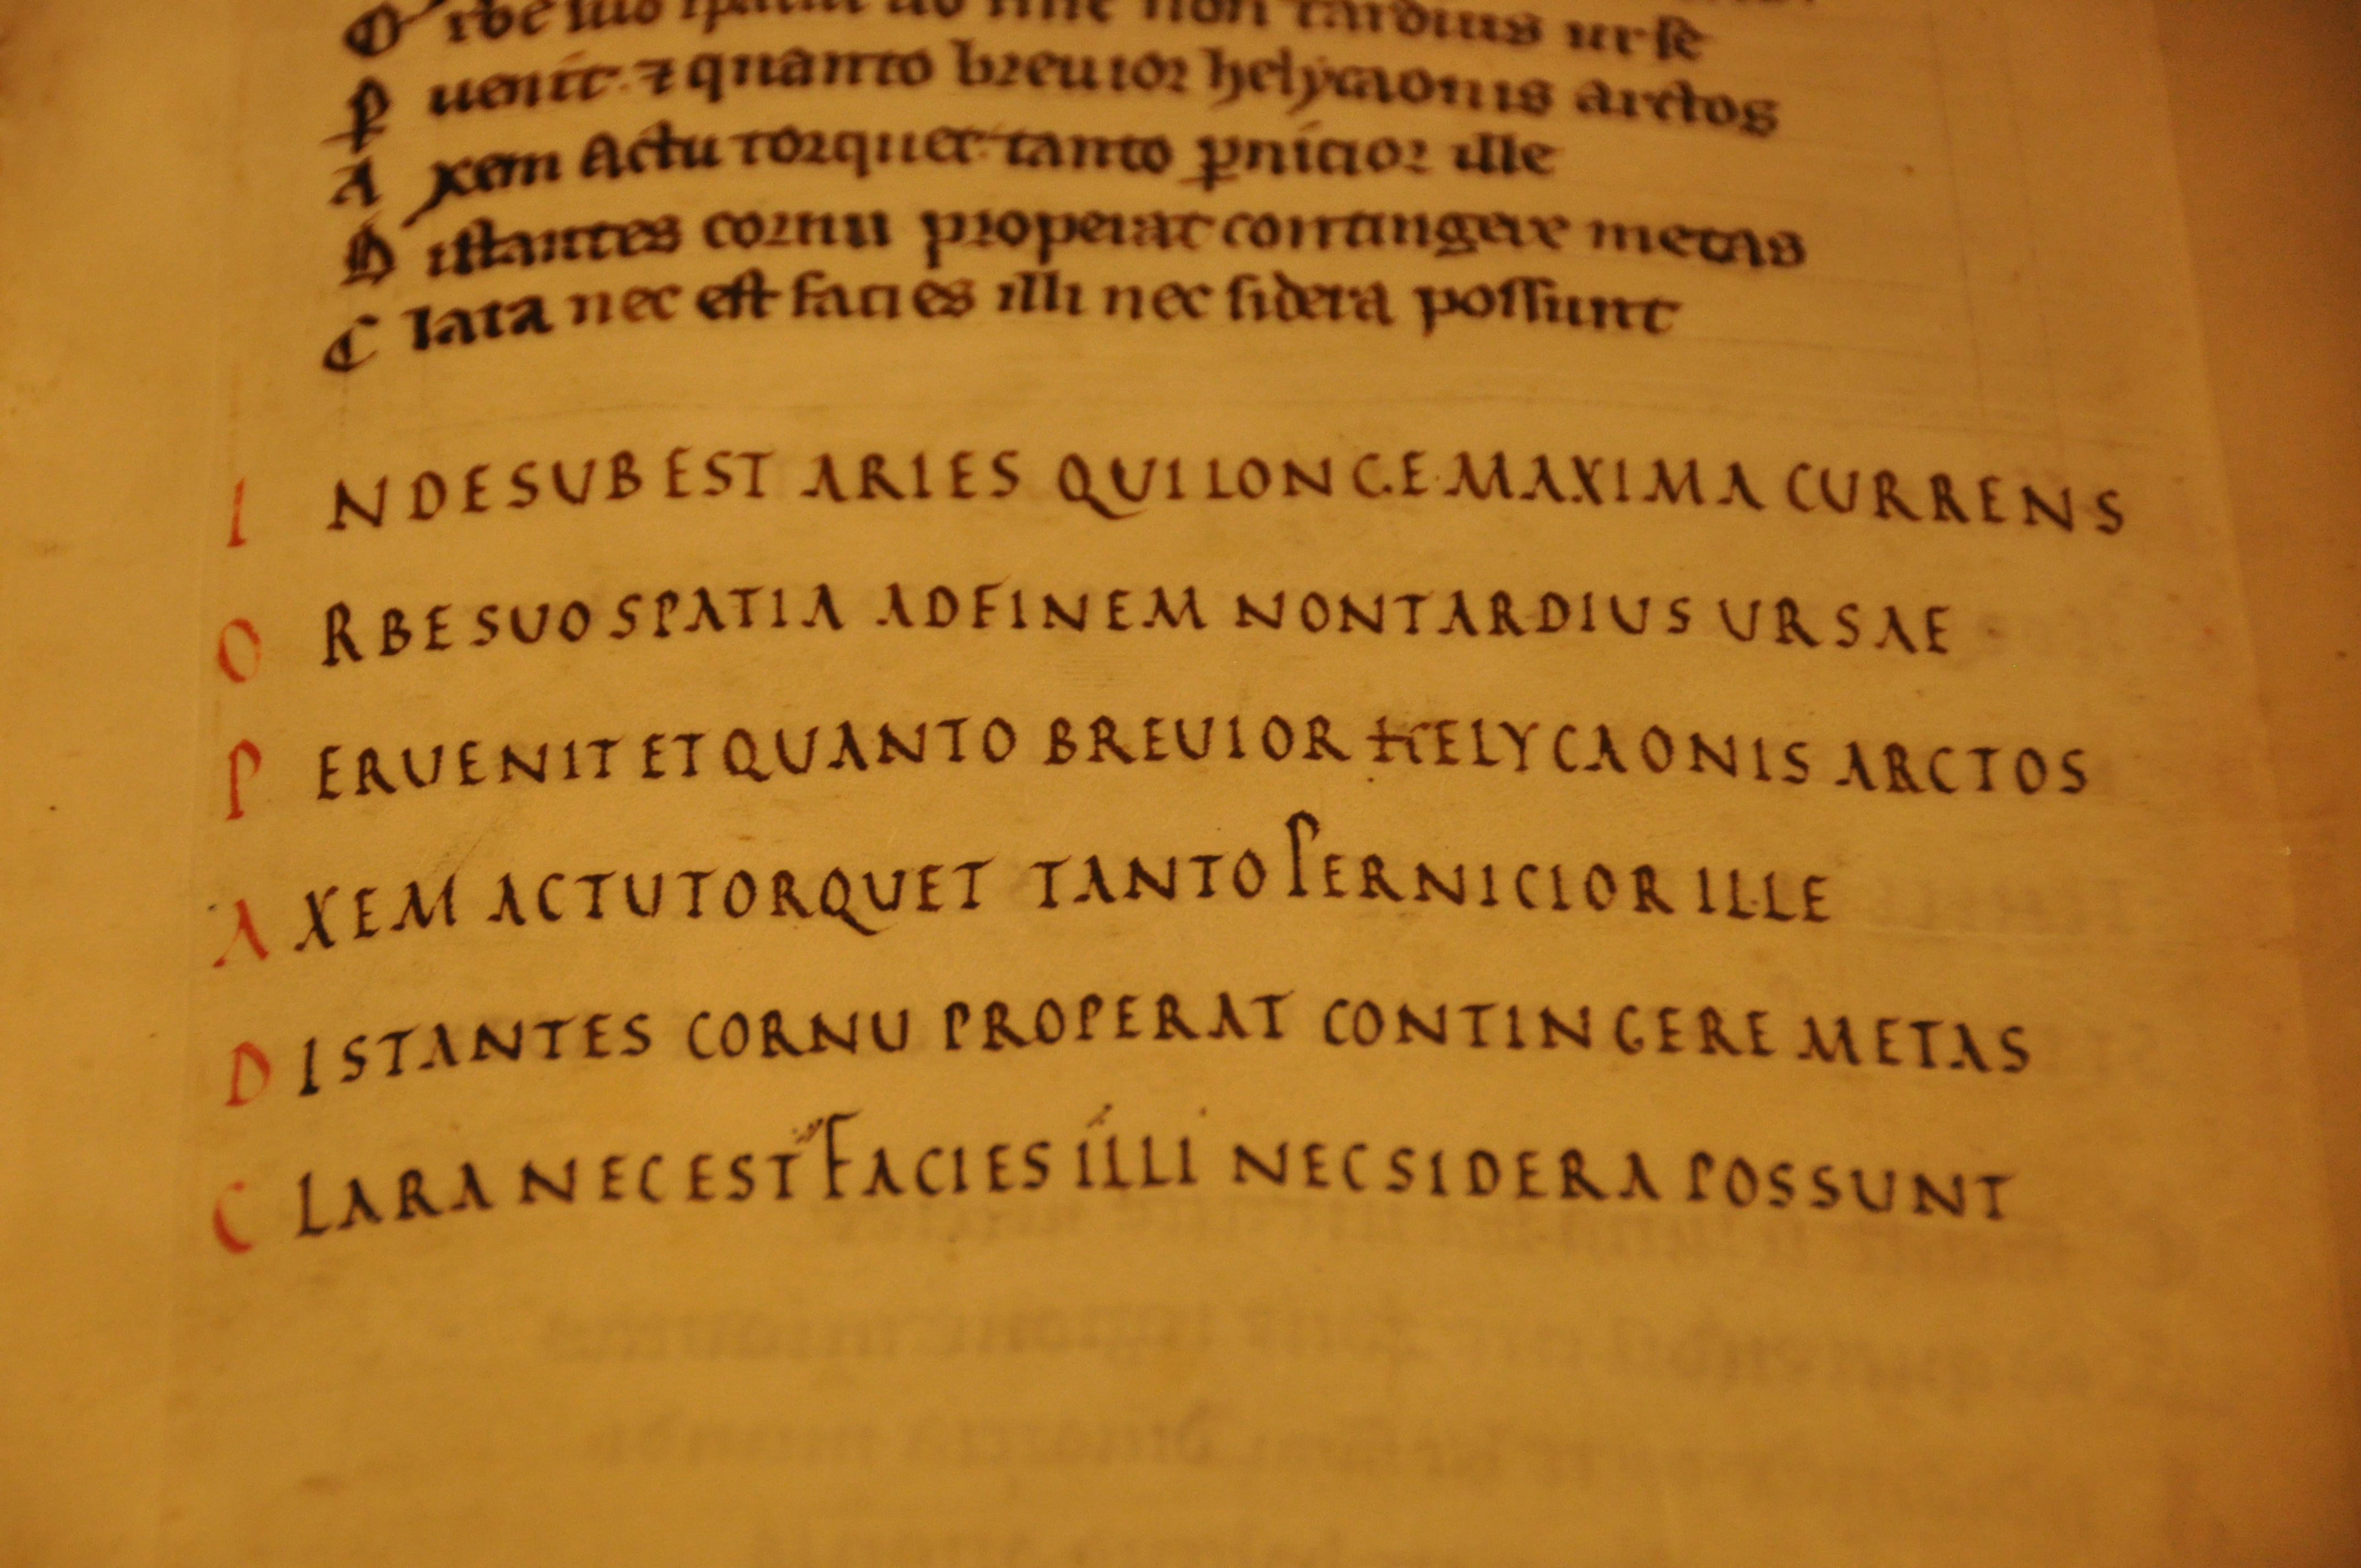 O rbe suo spatia ad fine non tardius urse
P uenit ⁊ quanto breuior helycaonis arctos
A xem Actu torquet tanto ꝑnicior ille
D istantes cornu properat contingere metas
C lara nec est facies illi nec sidera possunt
I NDESUBEST ARIES QUILONGE MAXIMA CURRENS
O RBESUOSPATIA ADFINEM NONTARDIUS URSAE
P ERUENIT ET QUANTO BREUIOR HELYCAONIS ARCTOS
A XEM ACTUTORQUET TANTO PERNICIOR ILLE
D ISTANTES CORNU PROPERAT CONTINGERE METAS
C LARA NECEST FACIES ILLI NECSIDERA POSSUNT